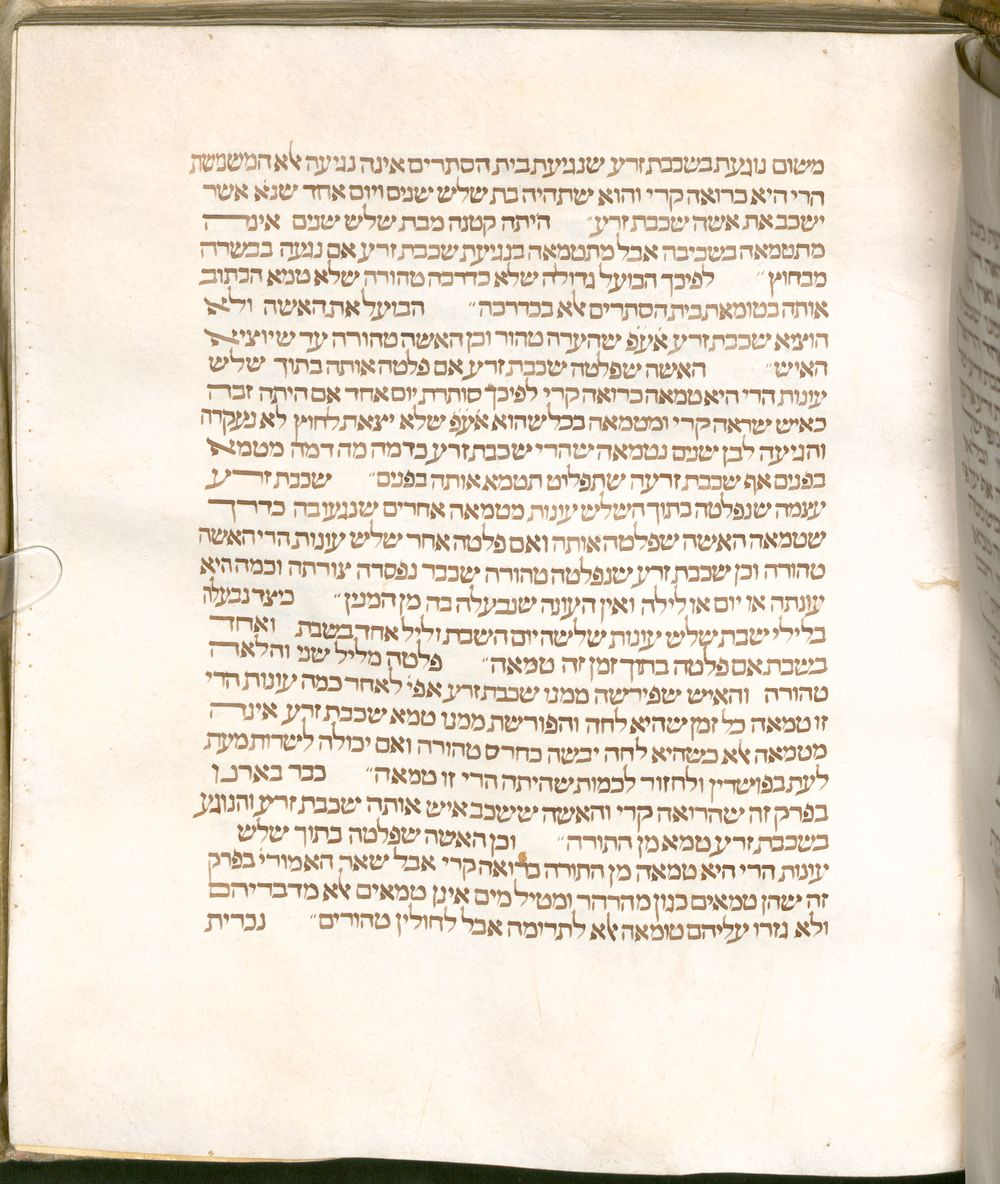 משום נוגעת בשכבת זרע שנגיעת בית הסתרים אינה נגיעה אלא המשמשת
הרי היא כרואה קרי והוא שתהיה בת שלש שנים ויום אחד שנא אשר
ישכב את אשה שכבת זרע״ היתה קטנה מבת שלש שנים אינה
מתטמאה בשכיבה אבל מתטמאה בנגיעת שכבת זרע אם נגעה בבשרה
מבחוץ״ לפיכך הבועל גדולה שלא כדרכה טהורה שלא טמא הכתוב
אותה בטומאת בית הסתרים אלא בכדרכה״ הבועל את האשה ולא
הוציא שכבת זרע אעפ שהערה טהור וכן האשה טהורה עד שיוציא
האיש״ האשה שפלטה שכבת זרע אם פלטה אותה בתוך שלש
עונות הרי היא טמאה כרואה קרי לפיכך סותרת יום אחד אם היתה זבה
כאיש שראה קרי ומטמאה בכל שהוא אעפ שלא יצאת לחוץ לא נעקרה
והגיעה לבן ישנים נטמאה שהרי שכבת זרע כדמה מה דמה מטמא
בפנים אף שכבת זרעה שתפליט תטמא אותה בפנים״ שכבת זרע
עצמה שנפלטה בתוך השלש עונות מטמאה אחרים שנגעו בה כדרך
שטמאה האשה שפלטה אותה ואם פלטה אחר שלש עונות הרי האשה
טהורה וכן שכבת זרע שנפלטה טהורה שכבר נפסדה צורתה וכמה היא
עונתה או יום או לילה ואין העונה שנבעלה בה מן המנין״ כיצד נבעלה
בלילי שבת שלש עונות שלשה יום השבת וליל אחד בשבת ואחד
בשבת אם פלטה בתוך זמן זה טמאה״ פלטה מליל שני והלאה
טהורה והאיש שפירשה ממנו שכבת זרע אפי לאחר כמה עונות הרי
זו טמאה כל זמן שהיא לחה והפורשת ממנו טמא שכבת זרע אינה
מטמאה אלא כשהיא לחה יבשה כחרס טהורה ואם יכולה לשרות מעת
לעת בפושרין ולחזור לכמות שהיתה הרי זו טמאה״ כבר בארנו
בפרק זה שהרואה קרי והאשה ששכב איש אותה שכבת זרע והנוגע
בשכבת זרע טמא מן התורה״ וכן האשה שפלטה בתוך שלש
עונות הרי היא טמאה מן התורה כרואה קרי אבל שאר האמורי בפרק
זה שהן טמאים כגון מהרהר ומטיל מים אינן טמאים אלא מדבריהם
ולא גזרו עליהם טומאה אלא לתרומה אבל לחולין טהורים״ נכרית